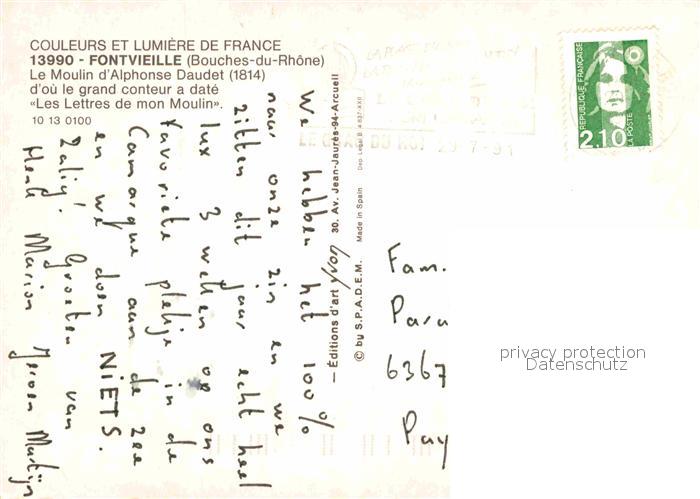 COULEURS ET LUMIÈRE DE FRANCE
13990 - FONTVIEILLE (Bouches-du-Rhône)
Le Moulin d'Alphonse Daudet (1814)
d'où le grand conteur a daté
«Les Lettres de mon Moulin».
10 13 0100
We hebben het 100%
naar onze zin en we
zitten dit jaar echt heel
lux 3 wellen op ons
favoriete plekje in de
Camargue aan de zee
en we doen NIETS.
Zalig! Groeten van
Henk Marion Jeroen Martijn
— Éditions d'art yvon 30. Av. Jean-Jaurès-94-Arcueil
© by S.P.A.D.E.M. Made in Spain Dép. Légal B. 4.837-XXII
29-7-91
REPUBLIQUE FRANÇAISE
2,10
LA POSTE
Fam.
Para
6367
Pay
privacy protection
Datenschutz